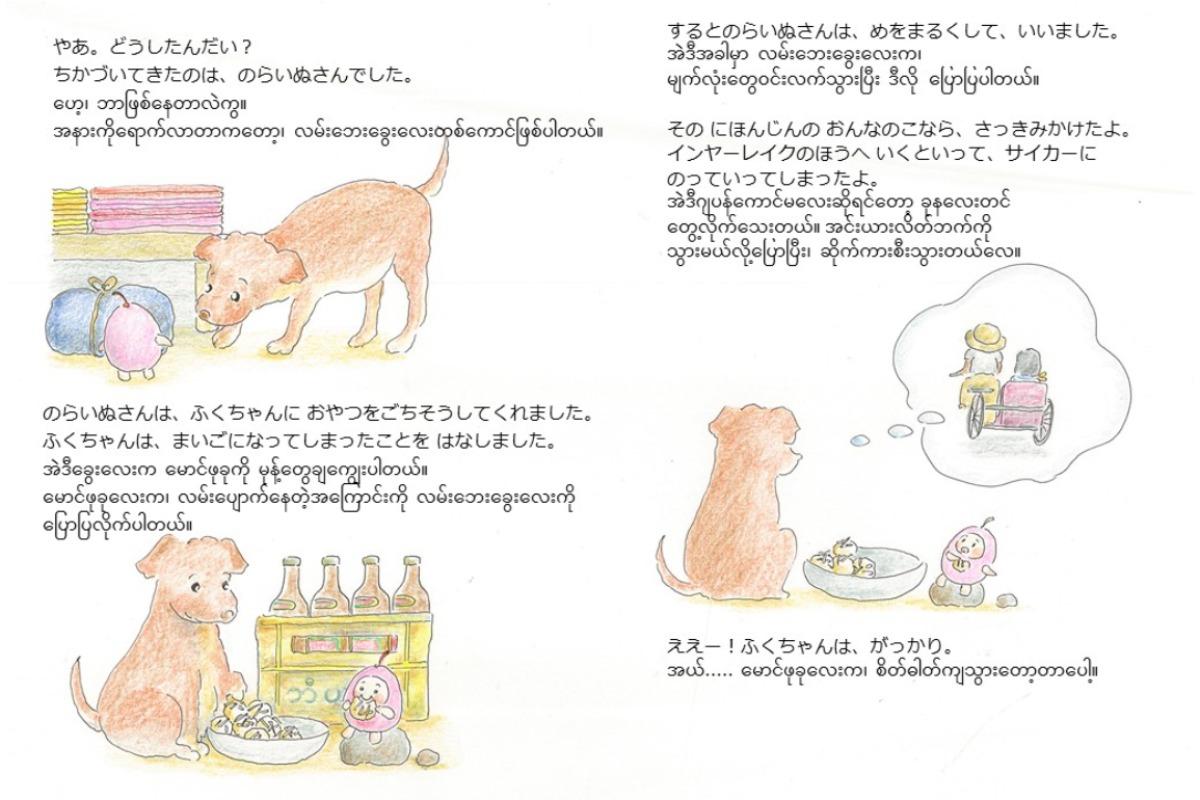 やあ。どうしたんだい？
ちかづいてきたのは、のらいぬさんでした。
ဟေ့၊ ဘာဖြစ်နေတာလဲကွ။
အနားကိုရောက်လာတာကတော့၊ လမ်းဘေးခွေးလေးတစ်ကောင်ဖြစ်ပါတယ်။
のらいぬさんは、ふくちゃんに おやつをごちそうしてくれました。
ふくちゃんは、まいごになってしまったことを はなしました。
အဲဒီခွေးလေးက မောင်ဖုခုကို မုန့်တွေချကျွေးပါတယ်။
မောင်ဖုခုလေးက၊ လမ်းပျောက်နေတဲ့အကြောင်းကို လမ်းဘေးခွေးလေးကို
ပြောပြလိုက်ပါတယ်။
ဘီယ
するとのらいぬさんは、めをまるくして、いいました。
အဲဒီအခါမှာ လမ်းဘေးခွေးလေးက၊
မျက်လုံးတွေဝင်းလက်သွားပြီး ဒီလို ပြောပြပါတယ်။
その にほんじんの おんなのこなら、さっきみかけたよ。
インヤーレイクのほうへ いくといって、サイカーに
のっていってしまったよ。
အဲဒီဂျပန်ကောင်မလေးဆိုရင်တော့ ခုနလေးတင်
တွေ့လိုက်သေးတယ်။ အင်းယားလိတ်ဘက်ကို
သွားမယ်လို့ပြောပြီး၊ ဆိုက်ကားစီးသွားတယ်လေ။
ええー！ふくちゃんは、がっかり。
အယ်..... မောင်ဖုခုလေးက၊ စိတ်ဓါတ်ကျသွားတော့တာပေါ့။